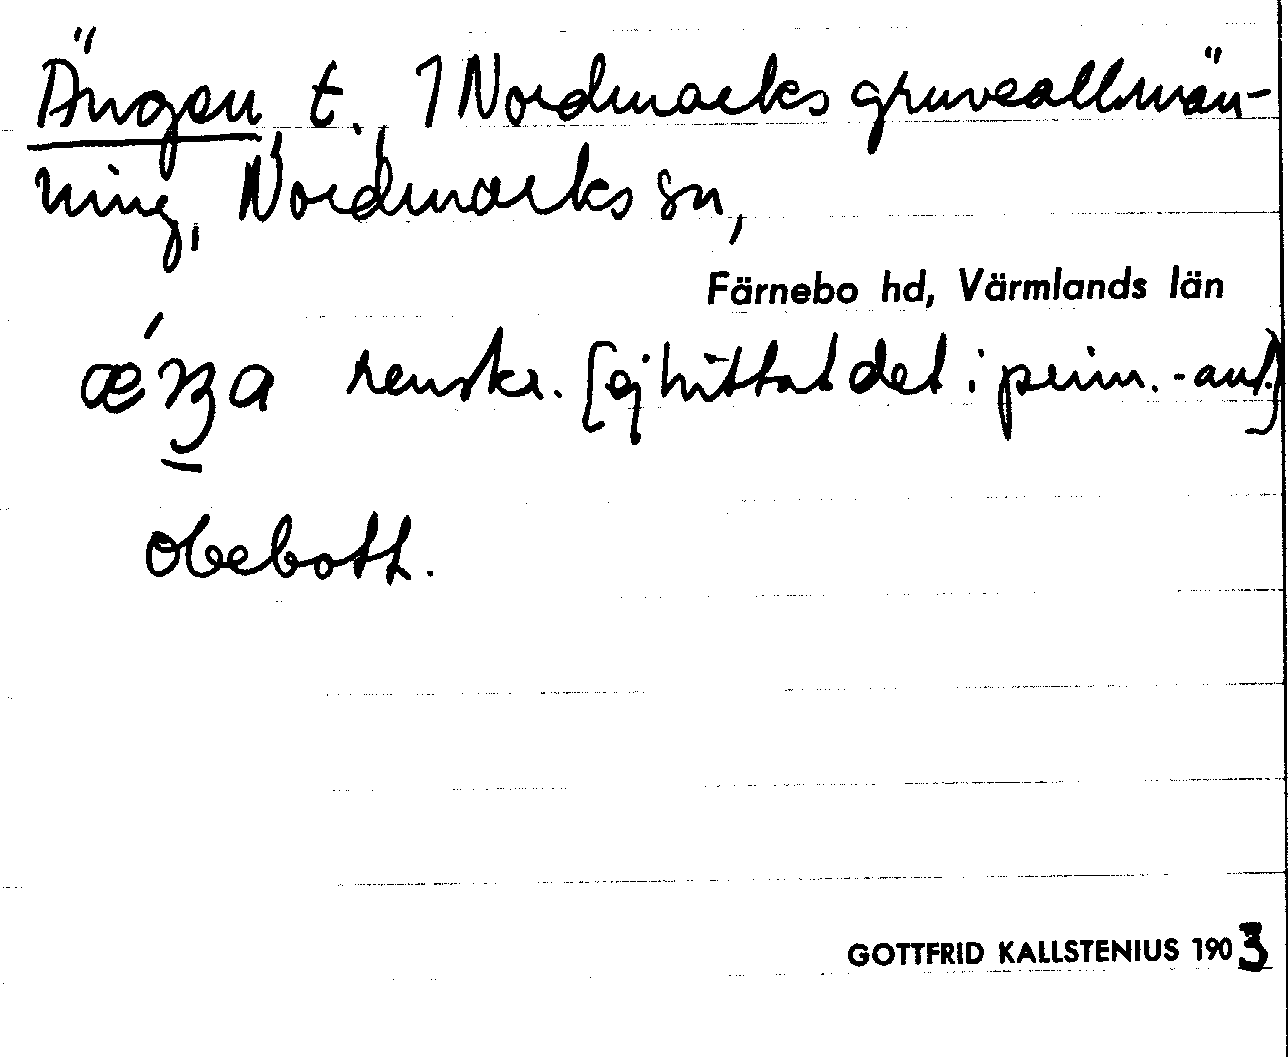 Ängen, t., 1 Nordmarks gruveallmän-
ning, Nordmarks sn,
Färnebo hd, Värmlands län
renskr. [ej hittat det i prim.-ant.]
obebott.
GOTTFRID KALLSTENIUS 1903